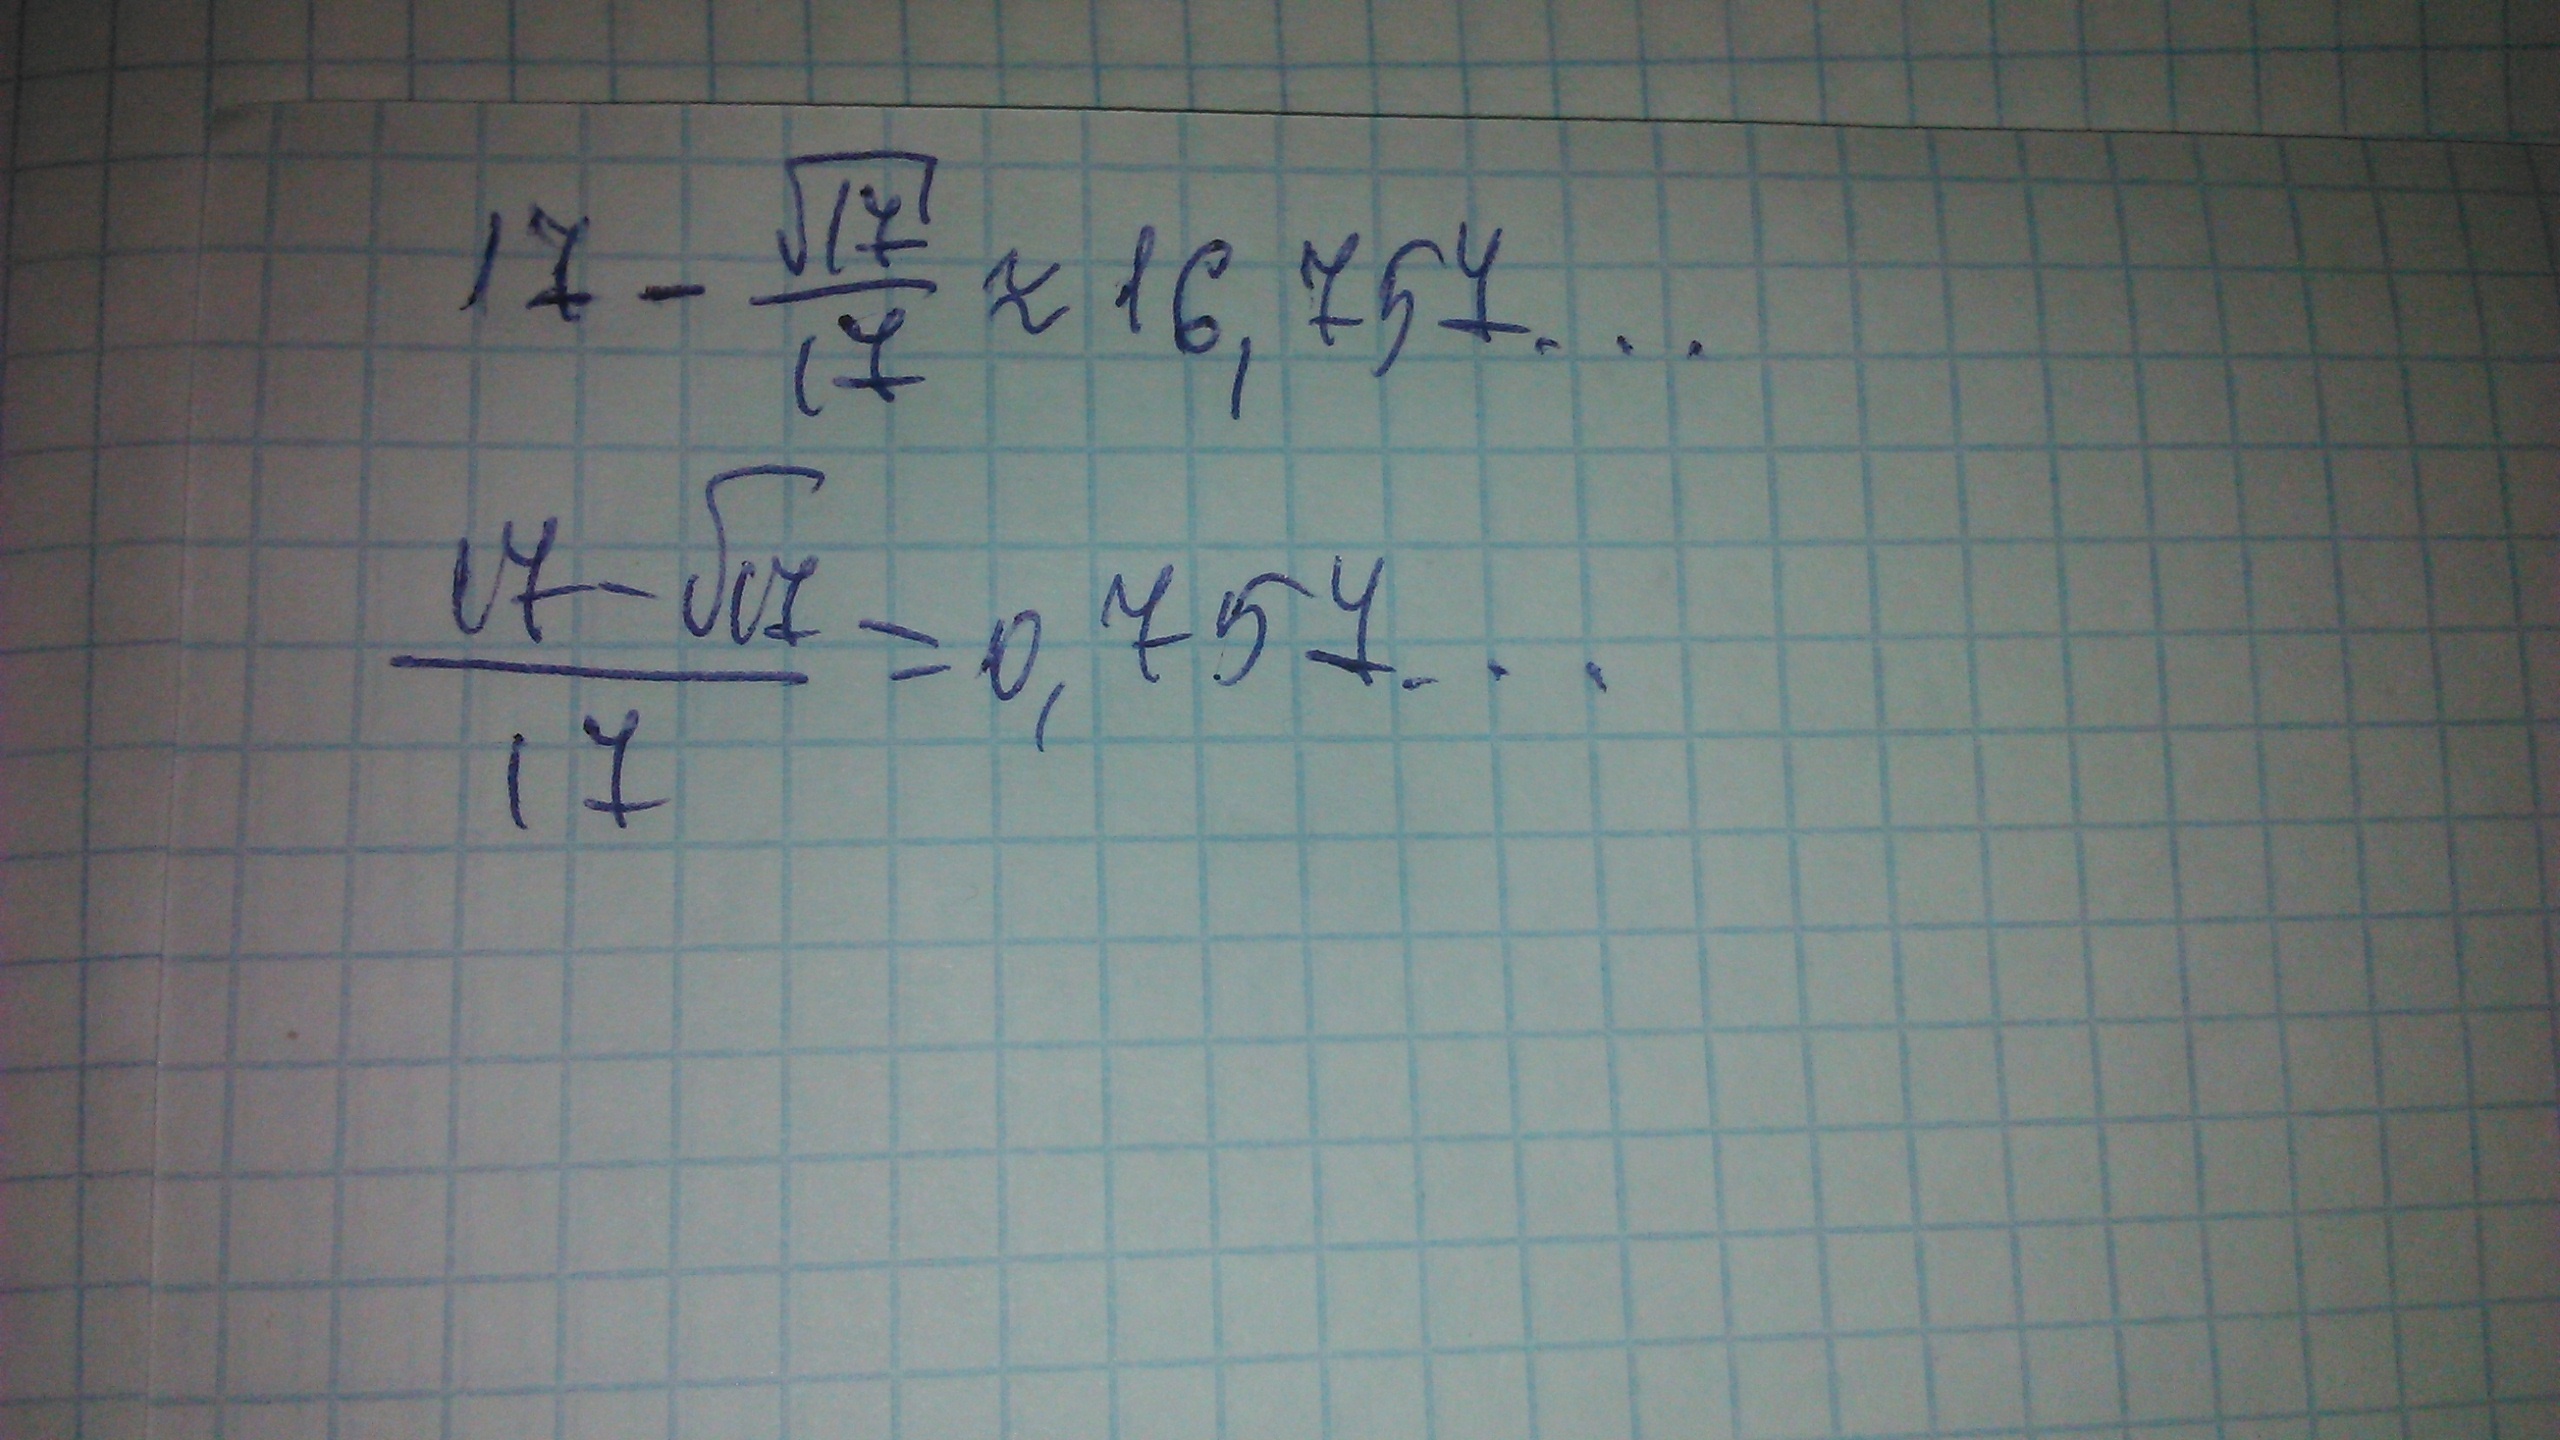 17 - √17/17 ≈ 16,757...
(17 - √17)/17 = 0,757...